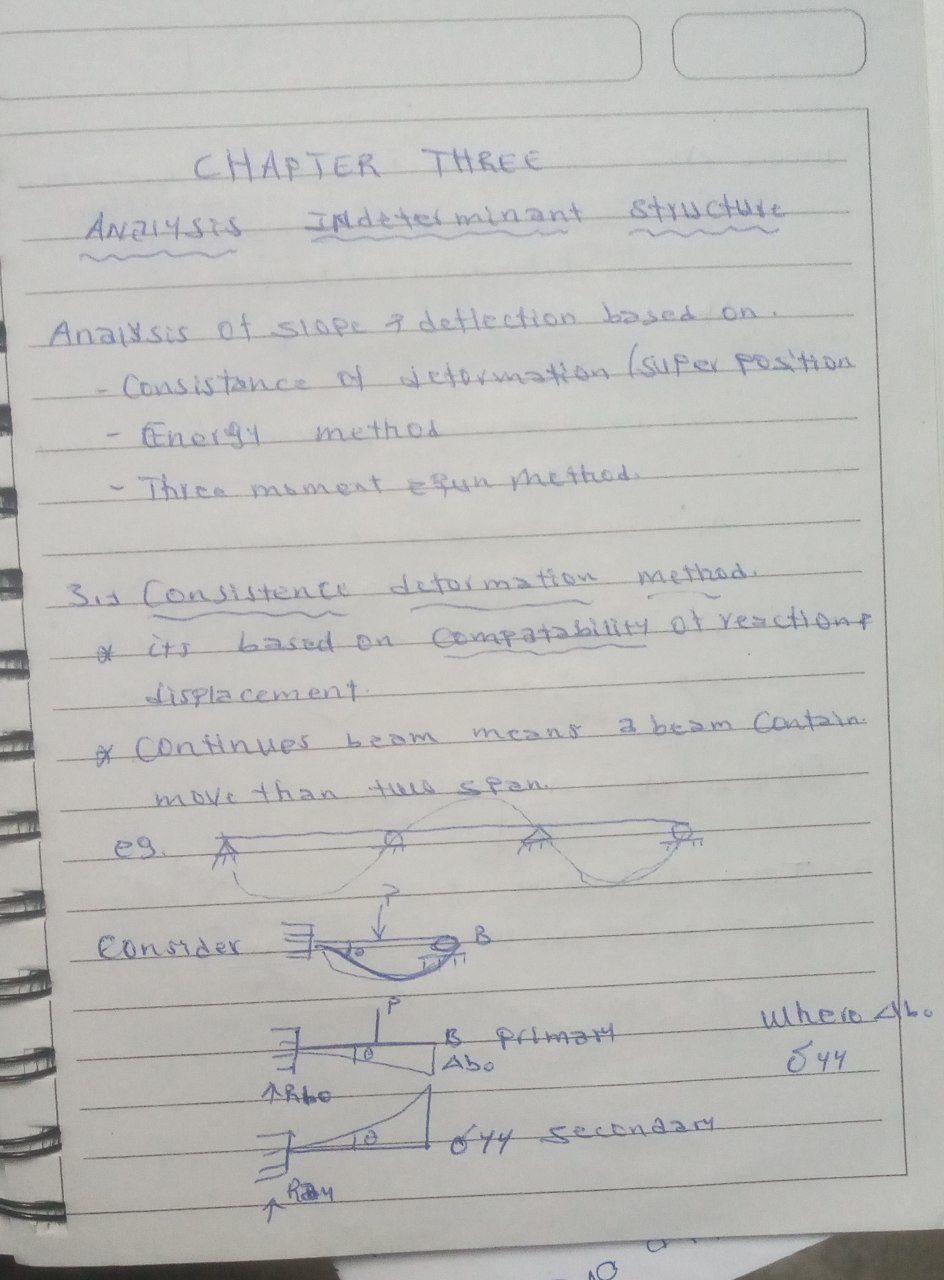 CHAPTER THREE
Analysis Indeterminant structure
Analysis of slope & deflection based on.
- Consistance of deformation (super position
- Energy method
- Three moment equn method.
3.1 Consistence deformation method.
* its based on compatability of reaction &
displacement.
* Continues beam means a beam contain
more than two span.
eg.
P
Consider B
θ
P
B primary where Δbo
θ Δbo δyy
↑Rbo
θ δyy secondary
↑